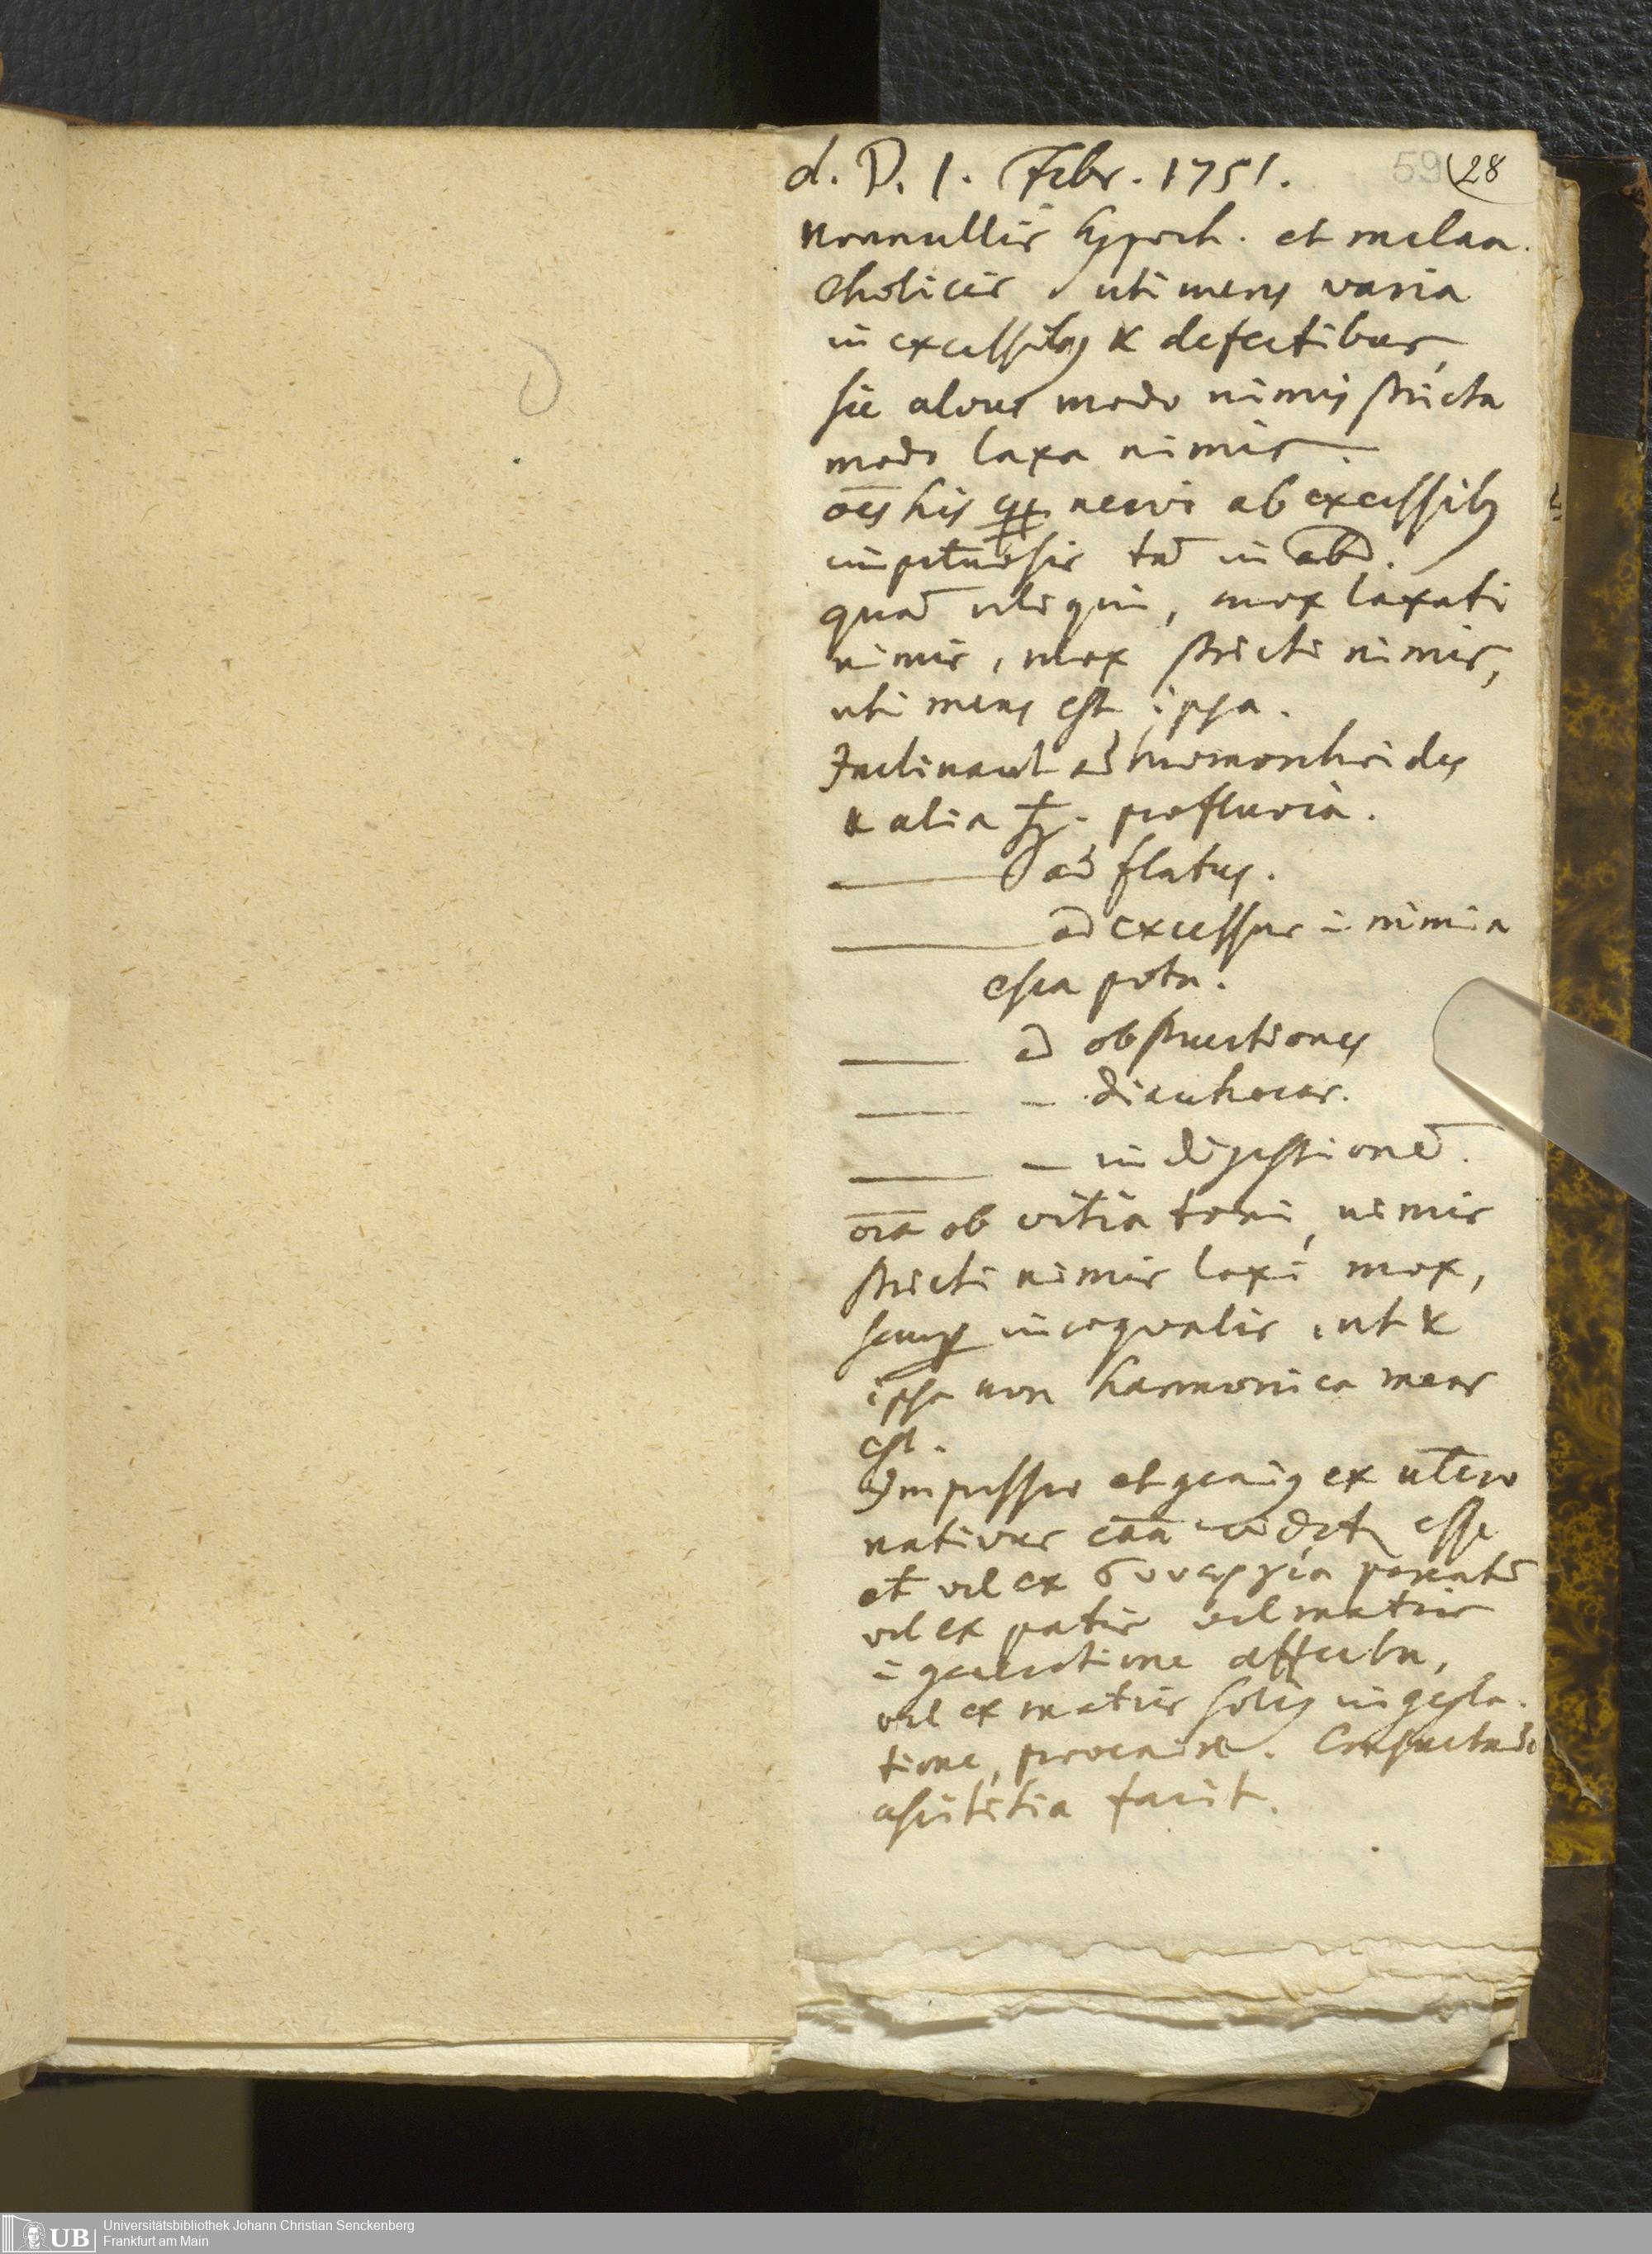 d. D. 1. Febr. 1751.
59 (28
Nonnullis hypoch. et melan.
cholicis, uti mens varia
in excessibus & defectibus,
sic alvus modo nimis stricta
modo laxa nimis.
oes his nervi ab excessib9
impetuosis tā in abd.
quā ali, mox laxati
nimis, mox stricti nimis,
uti mens est ipsa.
Inclinant ad haemorrhoides
& alia profluvia.
ad flatus.
ad excessus ī nimia
esca potu.
ad obstructiones
– diarrhoeas.
– indigestionē.
oīa ob vitia toni, nimis
stricti nimis laxi mox,
semp inaequalis, ut &
ipsa non harmonica mens
est.
Impressio et geni9 ex utero
nativus cāa videt esse
et vel ex συνεργία parentū
vel ex patris vel matris
ī generatione affectu,
vel ex matris soli9 in gesta.
tione, procaire. Consuetudo
ascititia facit.
UB
Universitätsbibliothek Johann Christian Senckenberg
Frankfurt am Main